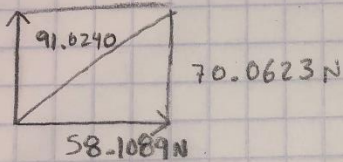 91.0240
70.0623 N
58.1089 N